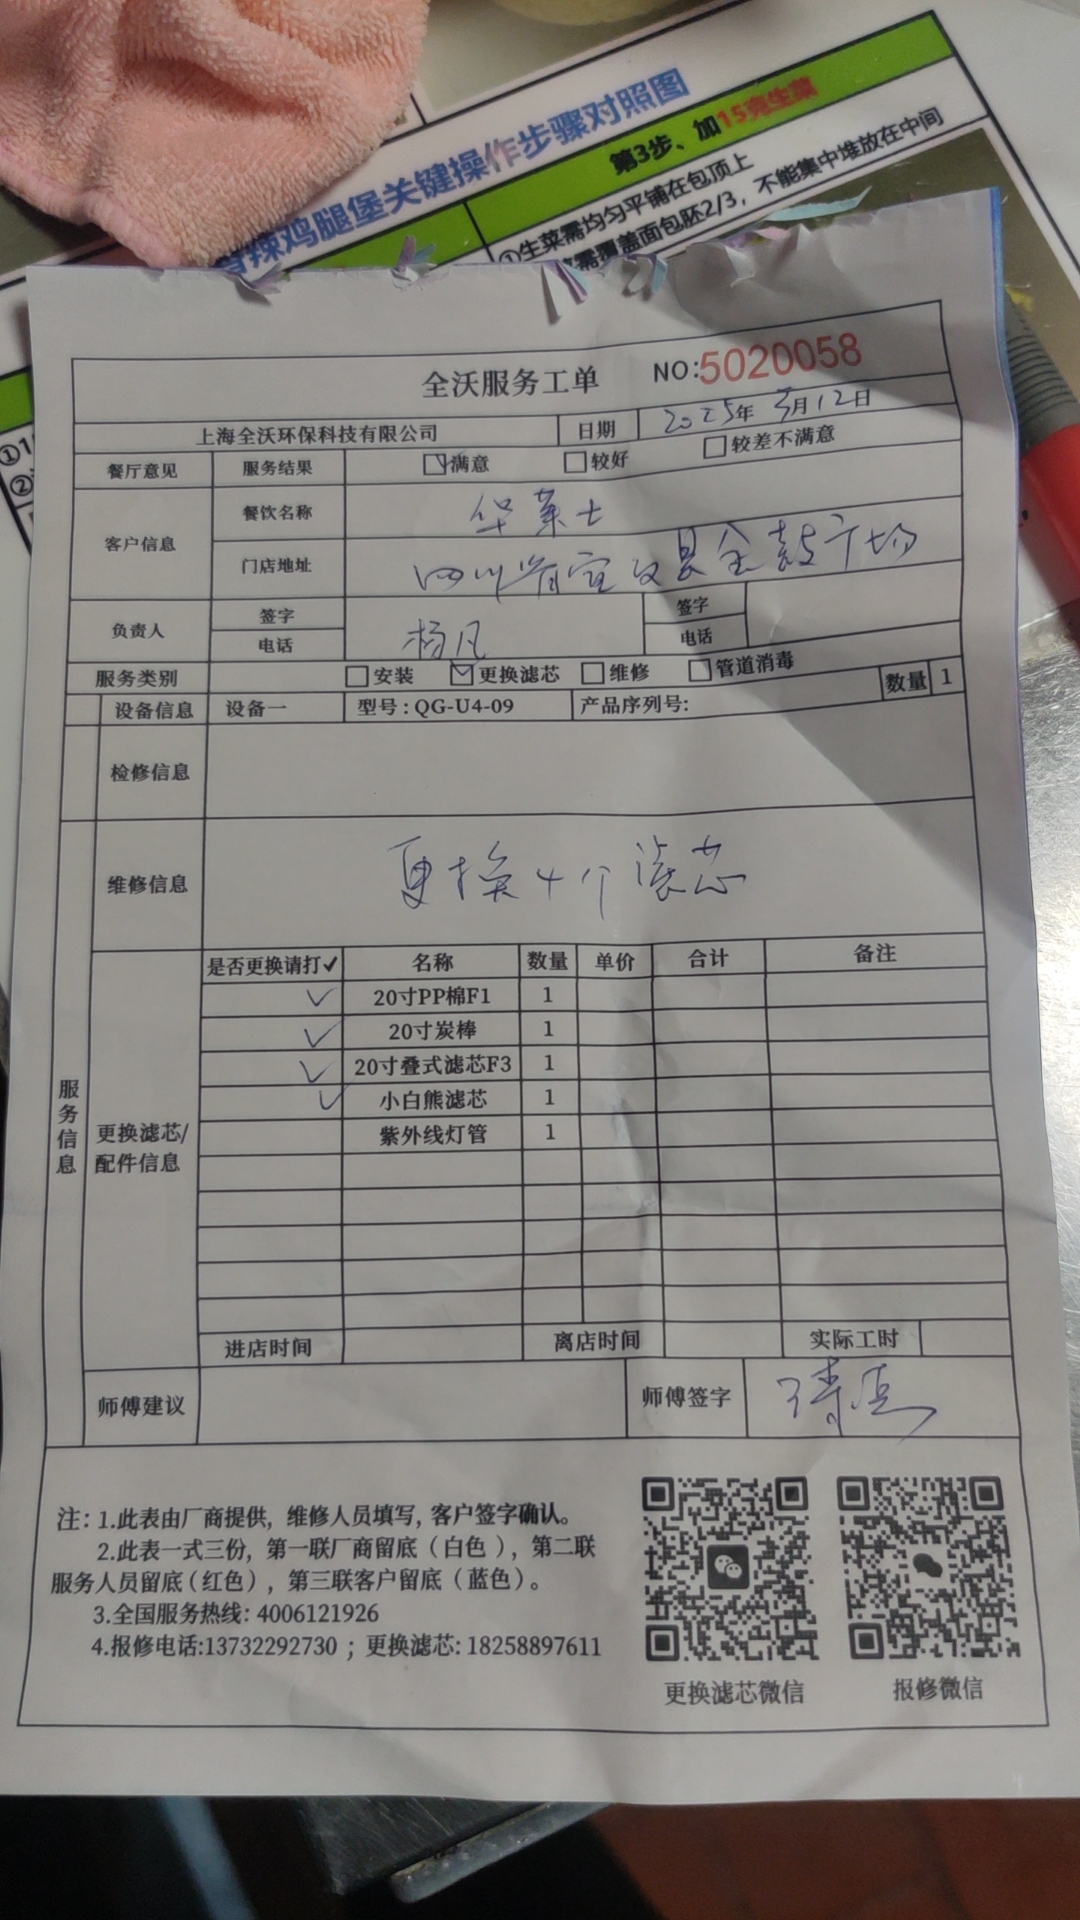 香辣鸡腿堡关键操作步骤对照图
第3步、加15克生菜
①生菜需均匀平铺在包顶上
需覆盖面包胚2/3，不能集中堆放在中间
全沃服务工单 NO:5020058
上海全沃环保科技有限公司 日期 2025年3月12日
餐厅意见 服务结果 ☑满意 □较好 □较差不满意
客户信息 餐饮名称 华莱士
门店地址 四川省宜宾县金鼓广场
负责人 签字 签字
电话 杨凡 电话
服务类别 □安装 ☑更换滤芯 □维修 □管道消毒
设备信息 设备一 型号：QG-U4-09 产品序列号： 数量 1
检修信息
维修信息 更换4个滤芯
服务信息
更换滤芯/配件信息
是否更换请打✓ 名称 数量 单价 合计 备注
✓ 20寸PP棉F1 1
✓ 20寸炭棒 1
✓ 20寸叠式滤芯F3 1
✓ 小白熊滤芯 1
紫外线灯管 1
进店时间 离店时间 实际工时
师傅建议 师傅签字
注：1.此表由厂商提供，维修人员填写，客户签字确认。
2.此表一式三份，第一联厂商留底（白色），第二联
服务人员留底（红色），第三联客户留底（蓝色）。
3.全国服务热线：4006121926
4.报修电话:13732292730；更换滤芯：18258897611
更换滤芯微信 报修微信